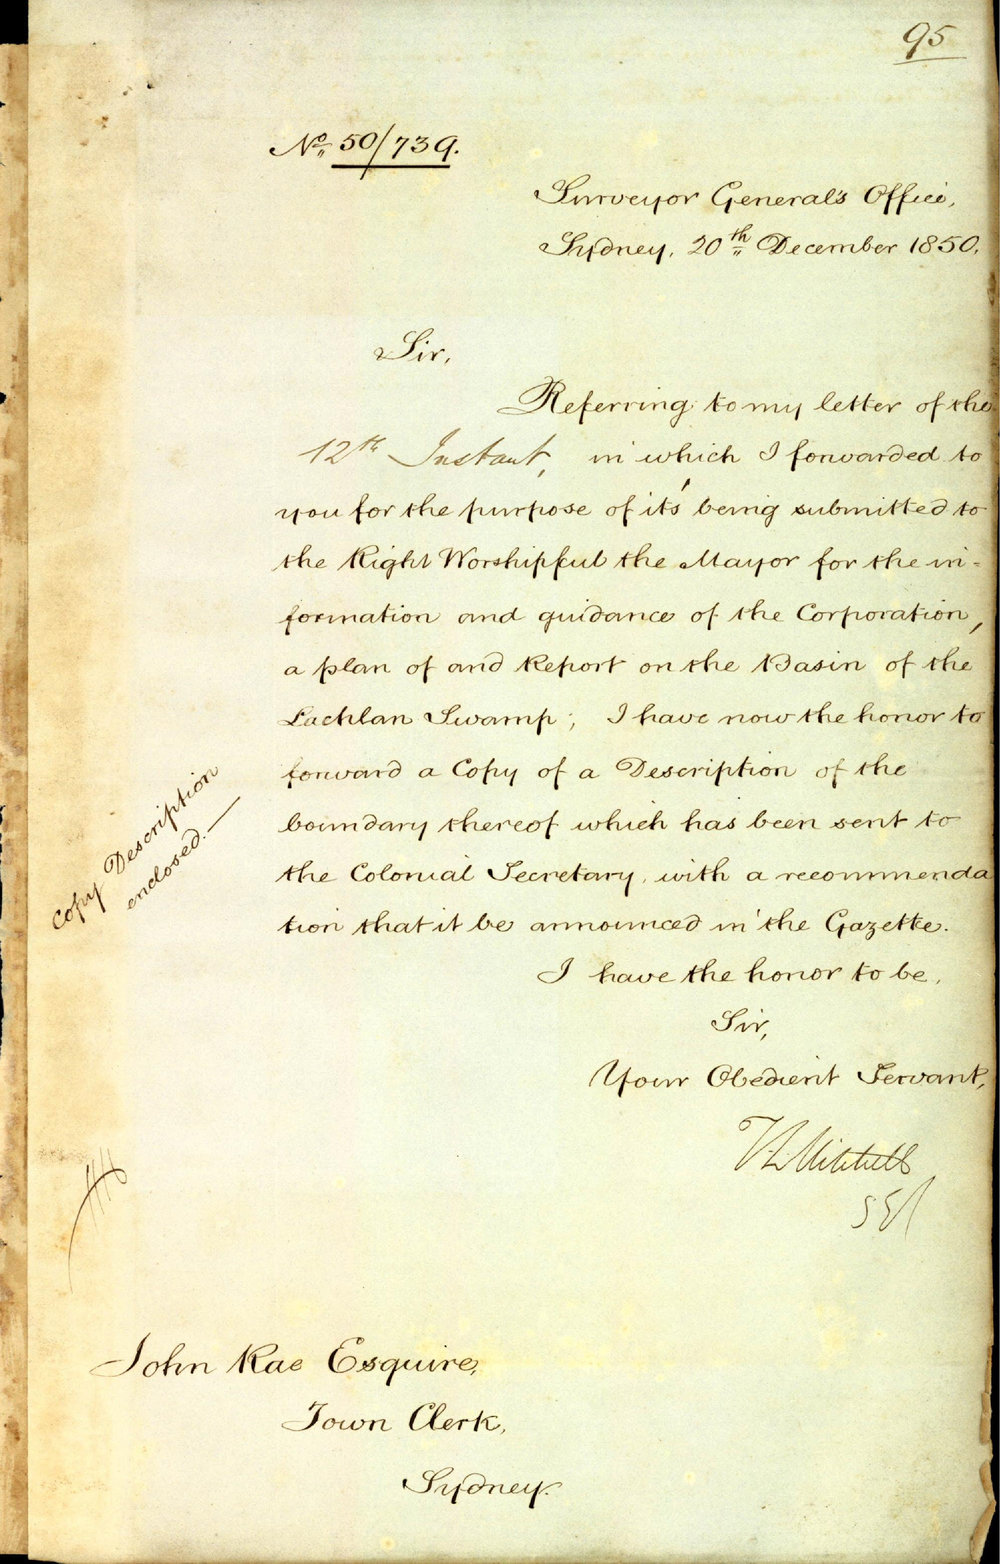 95
No. 50/739.
Surveyor General's Office,
Sydney, 20th December 1850.
Sir,
Referring to my letter of the
12th Instant, in which I forwarded to
you for the purpose of it's being submitted to
the Right Worshipful the Mayor for the in-
formation and guidance of the Corporation,
a plan of and Report on the Basin of the
Lachlan Swamp; I have now the honor to
forward a Copy of a Description of the
boundary thereof which has been sent to
the Colonial Secretary, with a recommenda
tion that it be announced in the Gazette.
Copy Description
enclosed.—
I have the honor to be,
Sir,
Your Obedient Servant,
T L Mitchell
S G
John Rae Esquire,
Town Clerk,
Sydney.